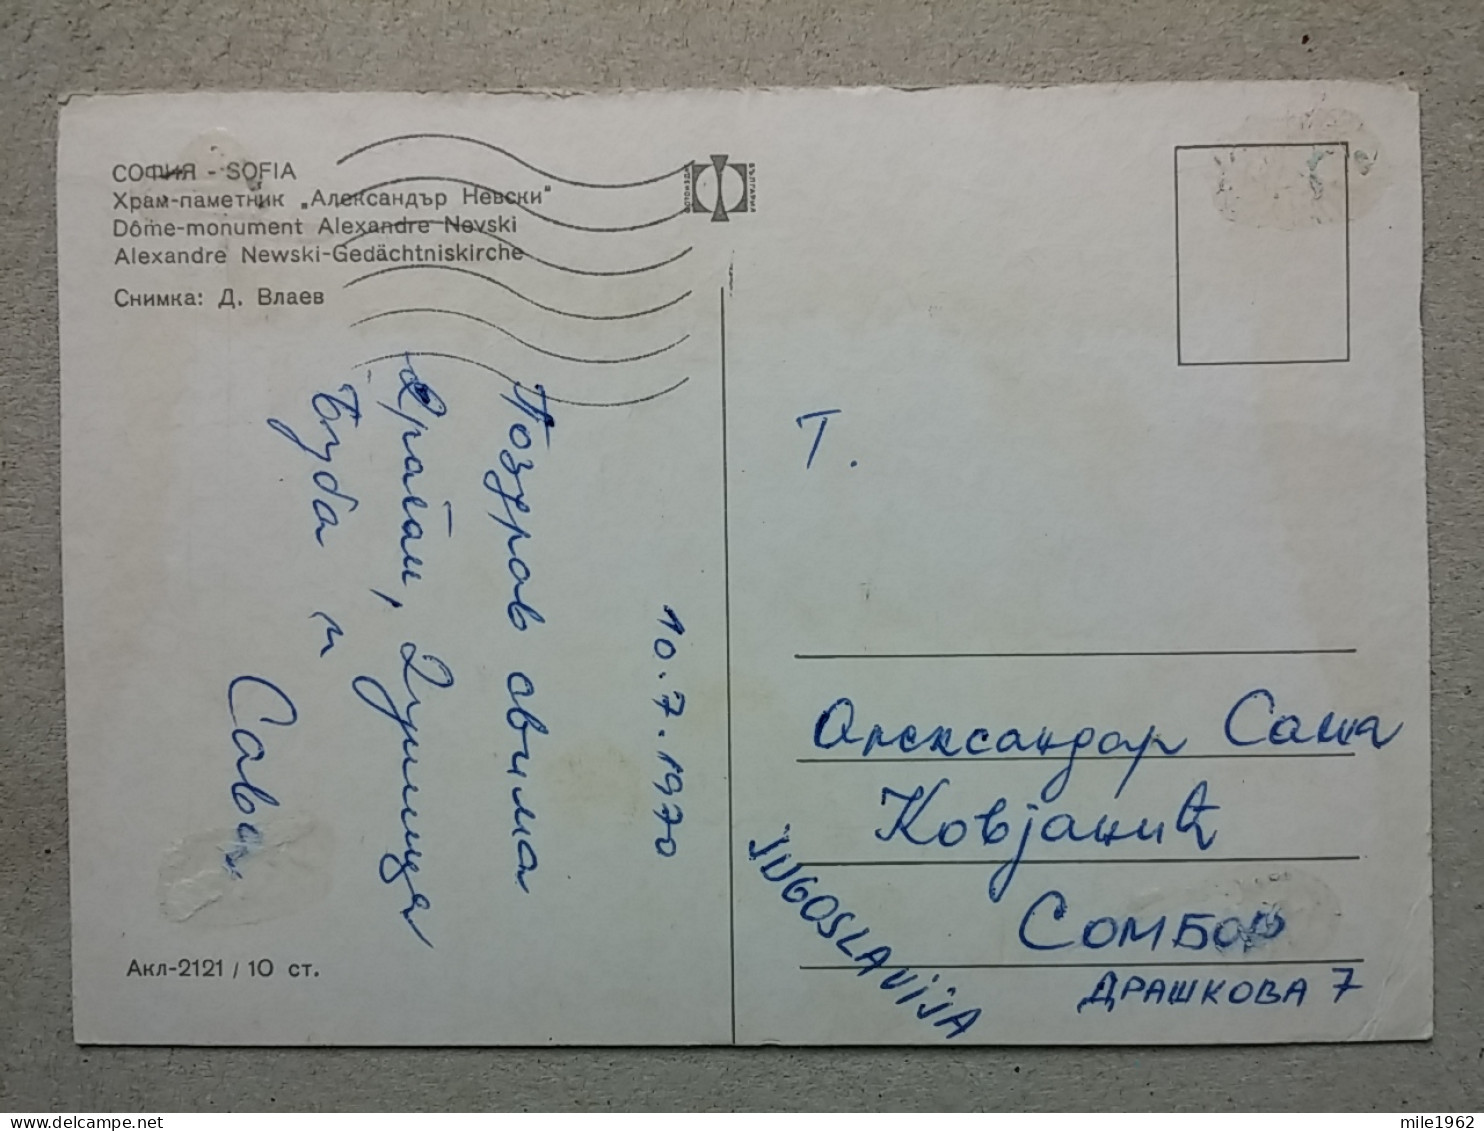 СОФИЯ - SOFIA
Храм-паметник „Александър Невски"
Dôme-monument Alexandre Nevski
Alexandre Newski-Gedächtniskirche
Снимка: Д. Влаев
БЪЛГАРИЯ
10.7.1970
Поздрав свима
Душица
Буба и
Сава
Акл-2121 / 10 ст.
Т.
Александар Саша
Ковјанић
СОМБОР
ДРАШКОВА 7
JUGOSLAVIJA
mile1962